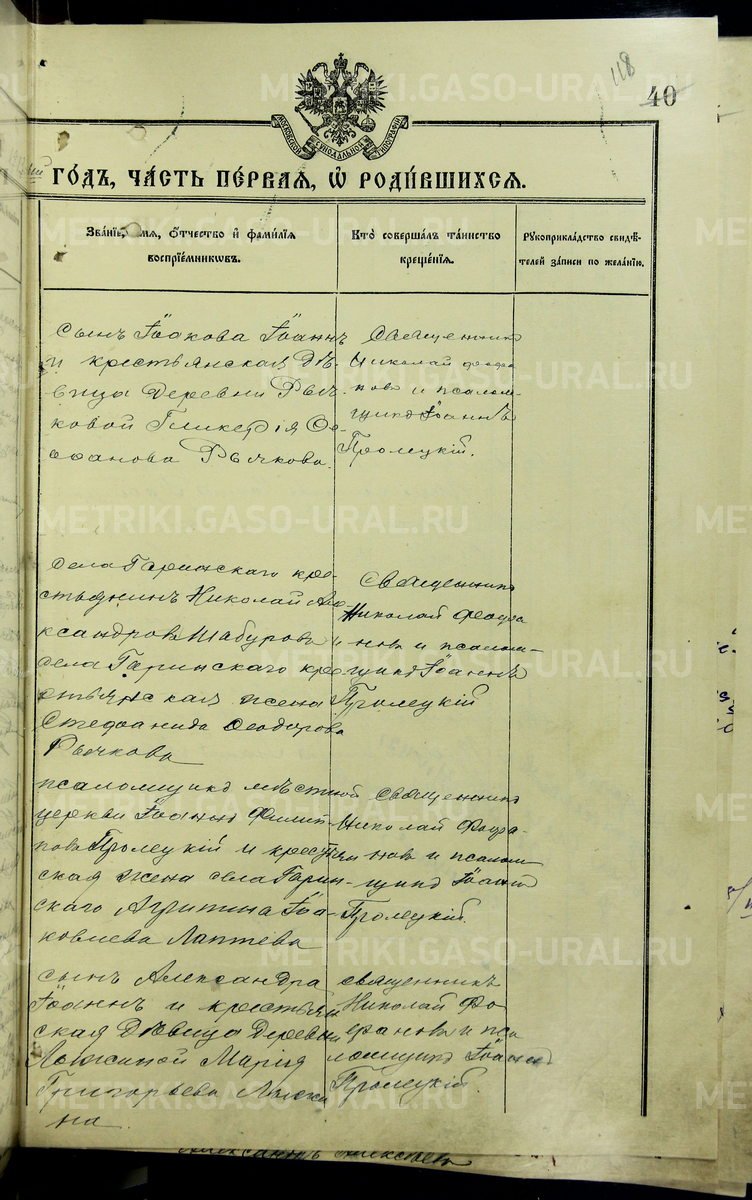 118
40
СѴНОДАЛЬНОЙ
ГО́ДЪ, ЧА́СТЬ ПЕ́РВАЯ, Ѡ҆ РОДИ́ВШИХСЯ.
Зва́нїе, и҆́мя, ѻ҆́тчество и҆ фами́лїя
воспрїе́мниковъ.
Кто̀ соверша́лъ та́инство
креще́нїя.
Рꙋкоприкла́дство свидѣ́-
телей за́писи по жела́нїю.
сынъ Іоакова Іоаннъ
и крестьянская дѣ-
вица деревни Рыч-
ковой Гликерія Сте-
фанова Рычкова.
Священникъ
Николай Феофа
новъ и псалом-
щикъ Іоаннъ
Пролецкій.
Села Гаринскаго кре-
стьянинъ Николай Але
ксандровъ Шабуровъ и
села Гаринскаго кре
стьянская жена
Стефанида Феодорова
Рычкова
Священникъ
Николай Феофа
новъ и псалом-
щикъ Іоаннъ
Пролецкій
псаломщикъ мѣстной
церкви Іоаннъ Филип-
повъ Пролецкій и крестьян
ская жена села Гарин-
скаго Агрипина Іоа-
ковлева Лаптева
Священникъ
Николай Феофа-
новъ и псалом
щикъ Іоаннъ
Пролецкій.
сынъ Александра
Іоаннъ и крестьян
ская дѣвица деревни
Марія
Григорьева
на.
священникъ
Николай Фео
фановъ и пса
ломщикъ Іоаннъ
Пролецкій.
METRIKI.GASO-URAL.RU